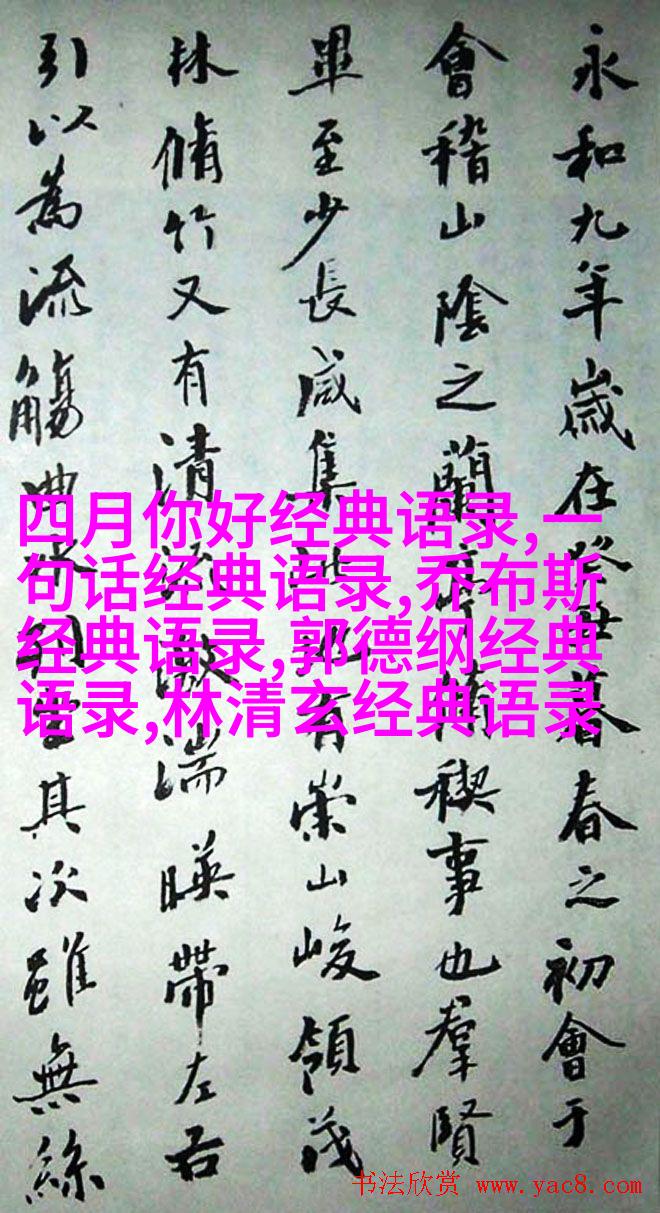 永和九年歲在癸丑暮春之初會于
會稽山陰之蘭亭脩禊事也羣賢
畢至少長咸集此地有崇山峻領茂
林脩竹又有清流激湍暎帶左右
引以為流觴曲水列坐其次雖無絲
四月你好经典语录,一
句话经典语录,乔布斯
经典语录,郭德纲经典
语录,林清玄经典语录
书法欣赏 www.yac8.com